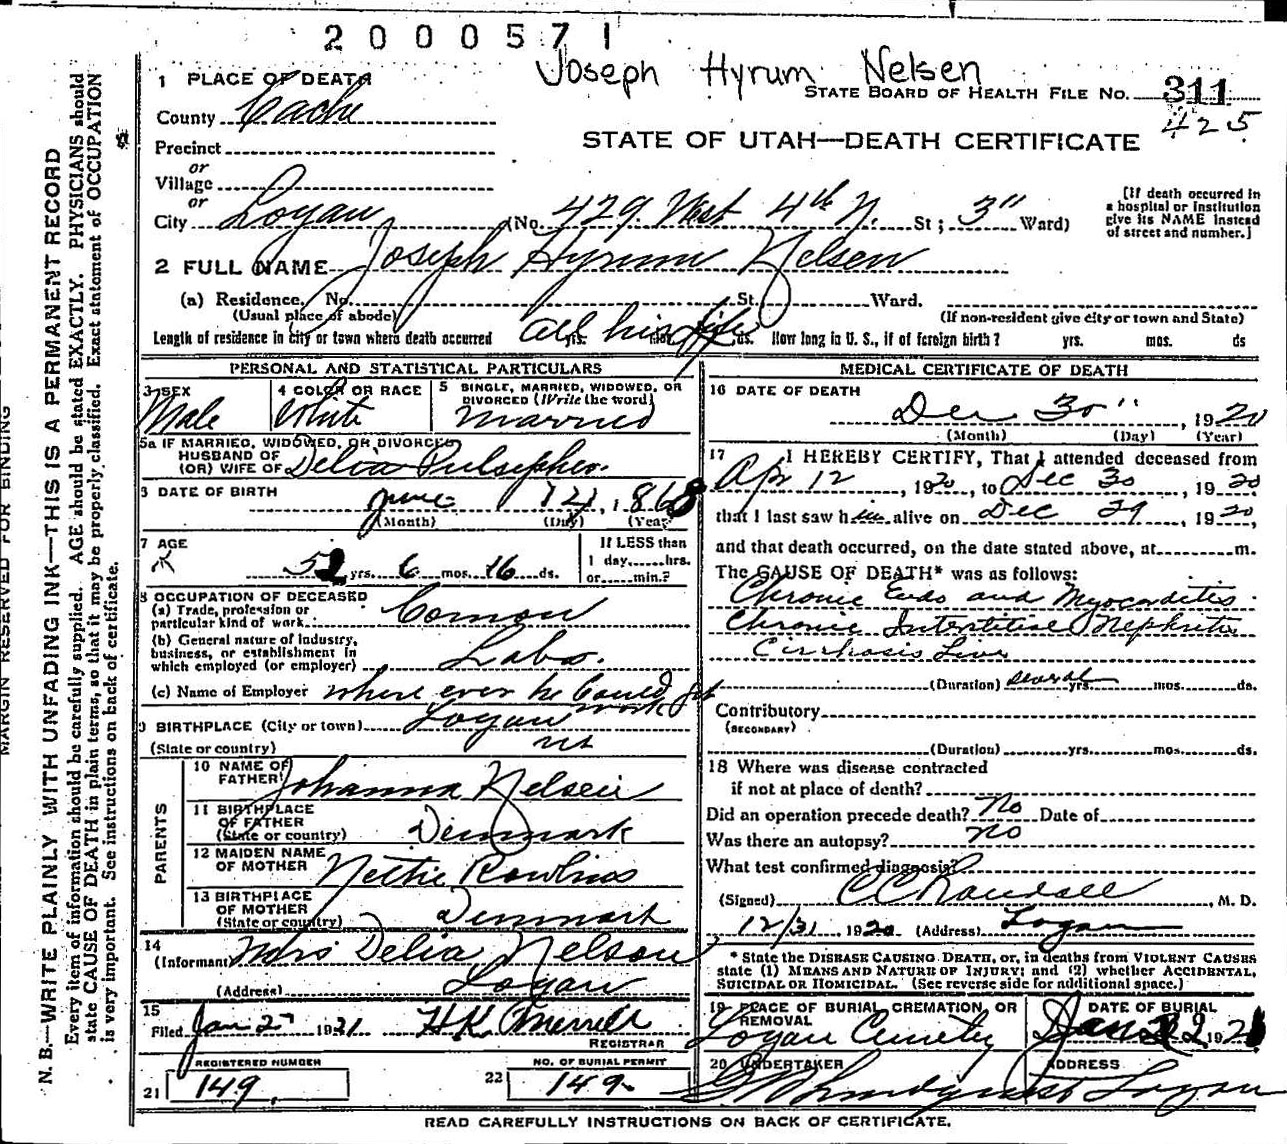 2000571
Joseph Hyrum Nelsen
STATE BOARD OF HEALTH FILE NO. 311
425
STATE OF UTAH—DEATH CERTIFICATE
1 PLACE OF DEATH
County Cache
Precinct
or
Village
or
City Logan (No. 429 West 4th N. St; 3" Ward)
[If death occurred in a hospital or institution give its NAME instead of street and number.]
2 FULL NAME Joseph Hyrum Nelsen
(a) Residence. No. St. Ward.
(Usual place of abode) (If non-resident give city or town and State)
Length of residence in city or town where death occurred All his life yrs. mos. ds. How long in U. S., if of foreign birth? yrs. mos. ds
PERSONAL AND STATISTICAL PARTICULARS
3 SEX
Male
4 COLOR OR RACE
White
5 SINGLE, MARRIED, WIDOWED, OR DIVORCED (Write the word)
Married
5a IF MARRIED, WIDOWED, OR DIVORCED
HUSBAND OF
(OR) WIFE OF Delia Pulsipher.
6 DATE OF BIRTH June 14, 1868
(Month) (Day) (Year)
7 AGE
52 yrs. 6 mos. 16 ds.
If LESS than
1 day......hrs.
or......min.?
8 OCCUPATION OF DECEASED
(a) Trade, profession or particular kind of work Comon
(b) General nature of industry, business, or establishment in which employed (or employer) Labo.
(c) Name of Employer where ever he Could get work
9 BIRTHPLACE (City or town) Logan
(State or country) Ut
PARENTS
10 NAME OF FATHER Johanna Nelsen
11 BIRTHPLACE OF FATHER (State or country) Denmark
12 MAIDEN NAME OF MOTHER Nettie Rowlins
13 BIRTHPLACE OF MOTHER (State or country) Denmark
14
(Informant Mrs Delia Nelson
(Address) Logan
15
Filed Jan 2 1921 H K Merrill
REGISTRAR
REGISTERED NUMBER
21 149.
NO. OF BURIAL PERMIT
22 149.
MEDICAL CERTIFICATE OF DEATH
16 DATE OF DEATH
Dec 30" , 1920
(Month) (Day) (Year)
17 I HEREBY CERTIFY, That I attended deceased from
Apr 12, 1920, to Dec 30, 1920
that I last saw him alive on Dec 29, 1920,
and that death occurred, on the date stated above, at m.
The CAUSE OF DEATH* was as follows:
Chronic Endo and Myocarditis
Chronic Interstitial Nephritis
Cirrhosis Liver
(Duration) several yrs. mos. ds.
Contributory
(SECONDARY)
(Duration) yrs. mos. ds.
18 Where was disease contracted
if not at place of death?
Did an operation precede death? No Date of
Was there an autopsy? no
What test confirmed diagnosis?
(Signed) C C Randall, M. D.
12/31 1920 (Address) Logan
* State the DISEASE CAUSING DEATH, or, in deaths from VIOLENT CAUSES
state (1) MEANS AND NATURE OF INJURY; and (2) whether ACCIDENTAL,
SUICIDAL OR HOMICIDAL. (See reverse side for additional space.)
19 PLACE OF BURIAL CREMATION, OR REMOVAL
Logan Cemetery
DATE OF BURIAL
Jan 2 1921
20 UNDERTAKER
Lindquist
ADDRESS
Logan
READ CAREFULLY INSTRUCTIONS ON BACK OF CERTIFICATE.
MARGIN RESERVED FOR BINDING
N. B.—WRITE PLAINLY WITH UNFADING INK—THIS IS A PERMANENT RECORD
Every item of information should be carefully supplied. AGE should be stated EXACTLY. PHYSICIANS should
state CAUSE OF DEATH in plain terms, so that it may be properly classified. Exact statement of OCCUPATION
is very important. See instructions on back of certificate.